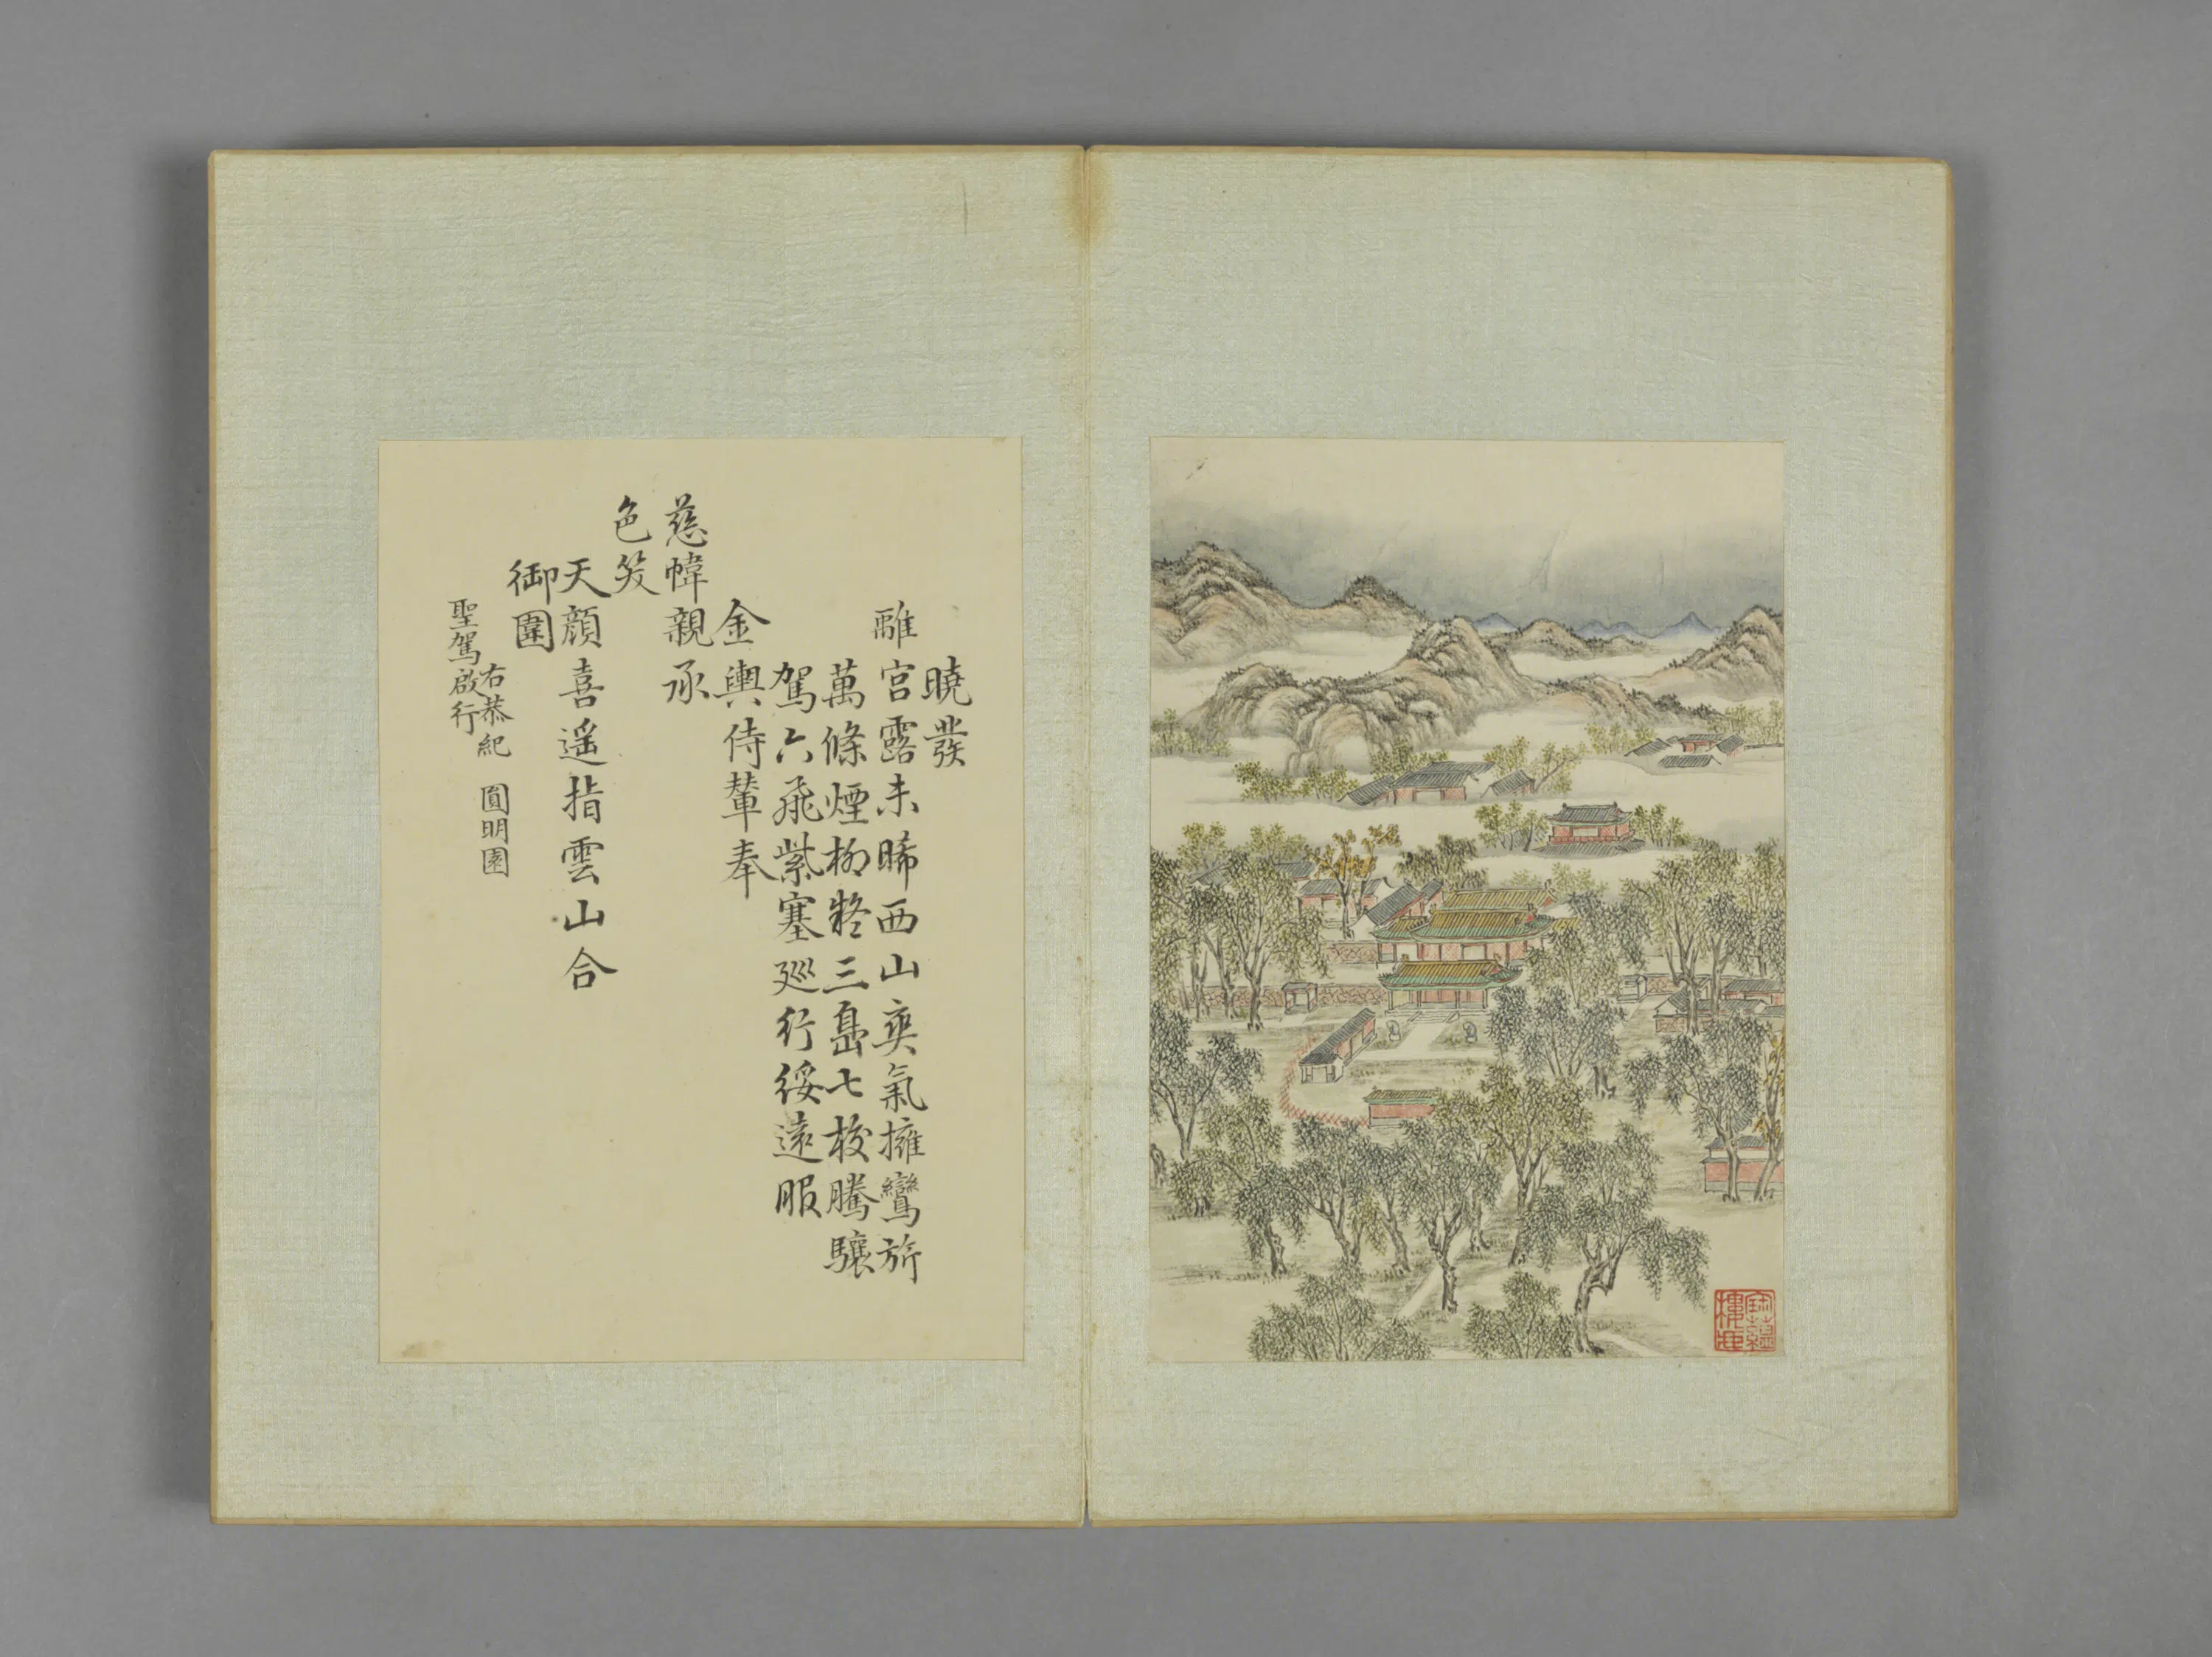 曉發
離宮露未晞西山爽氣擁鸞旂
萬條煙柳三島七校騰驤
駕六飛紫塞巡行綏遠服
金輿侍輦奉
慈幃親承
色笑
天顏喜遥指雲山合
御圍
右恭紀 圓明園
聖駕啟行
宝蘊樓藏